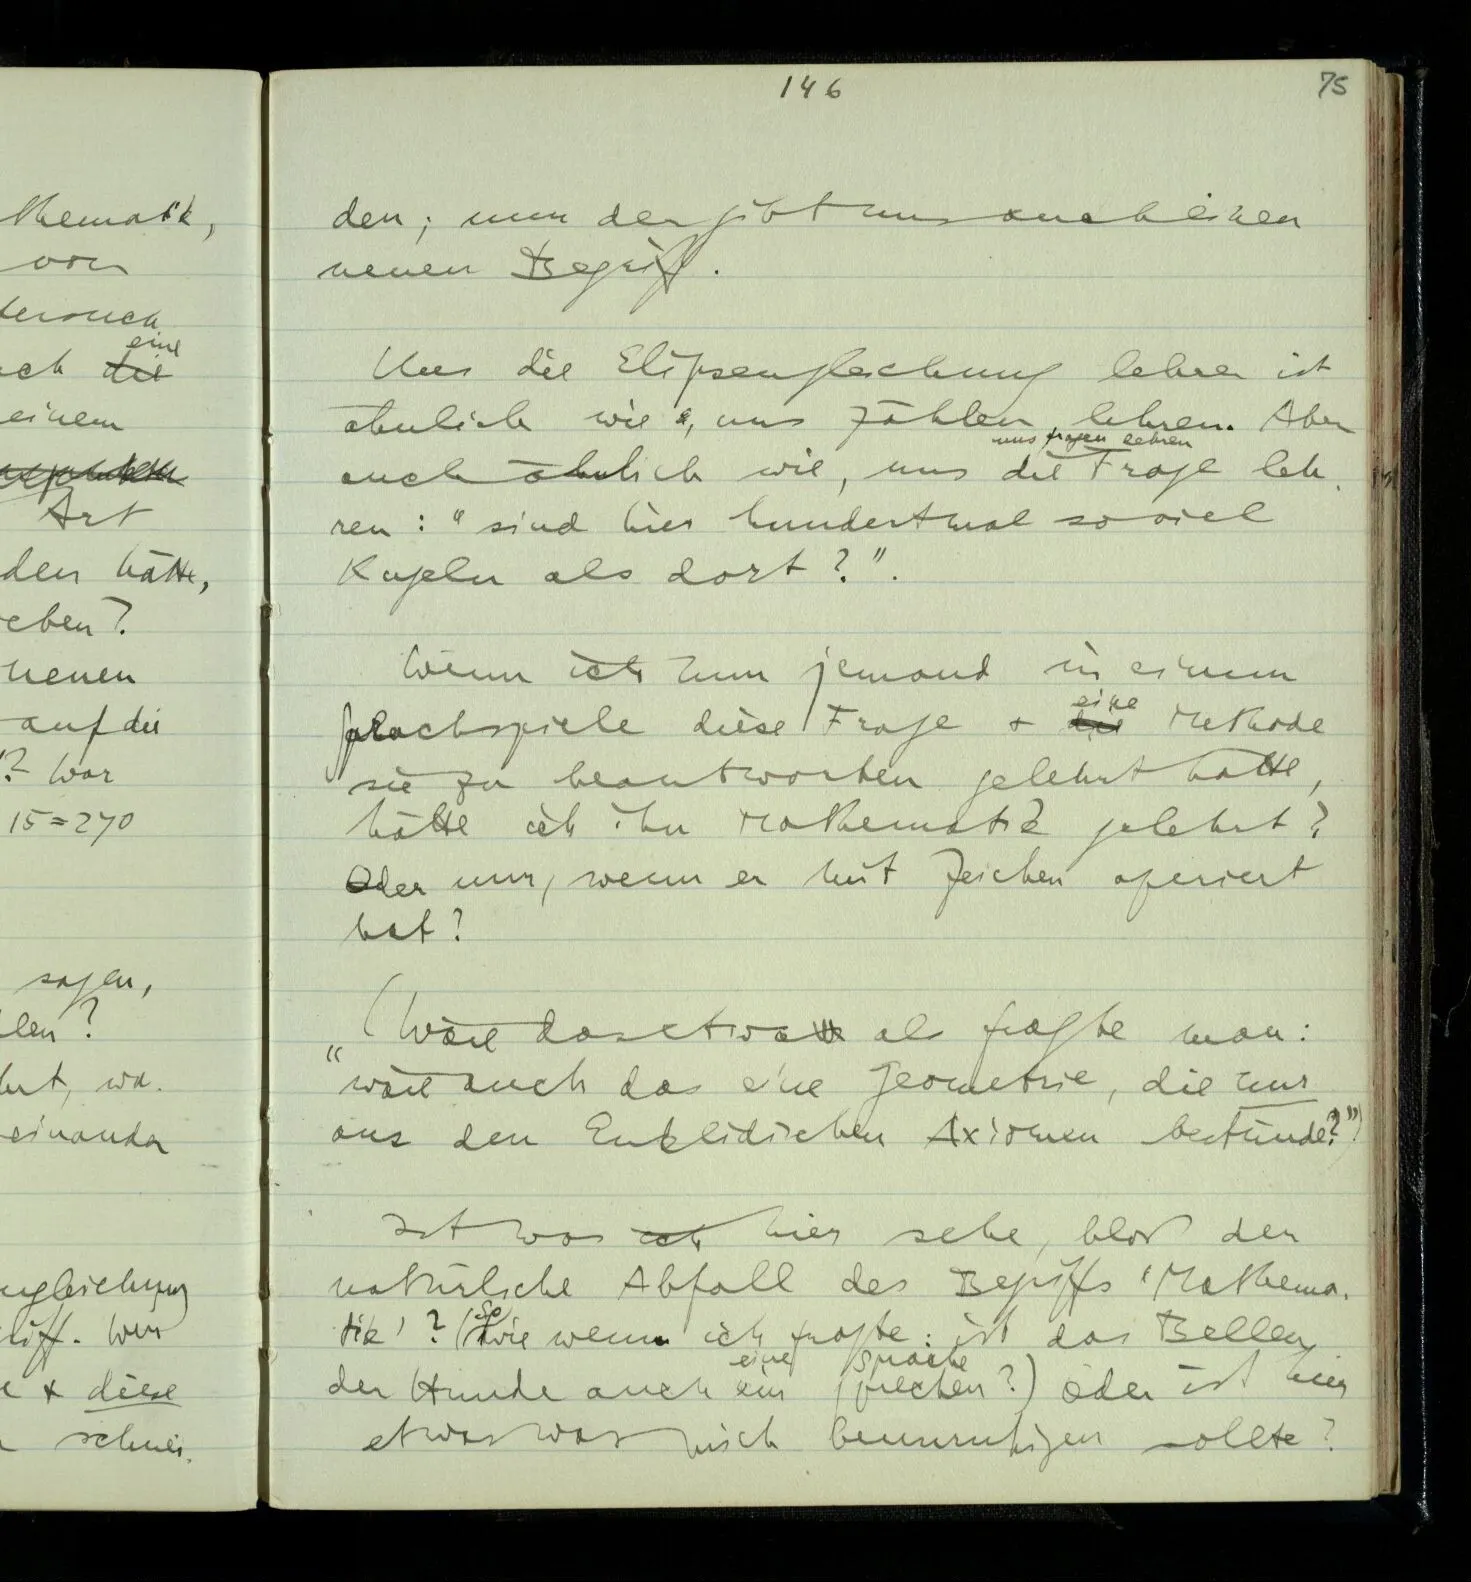 thematik,
von
eine
ch die
einem
Art
den hätte,
eben?
neuen
auf die
? War
15 = 270
sagen,
len?
wa-
einander
ngleichung
riff. Wer
& diese
schnei-
146
75
den; nun der gibt uns auch einen
neuen Begriff.
Uns die Elipsengleichung lehren ist
ähnlich wie, uns zählen lehren. Aber
uns fragen lehren
auch ähnlich wie, uns die Frage leh-
ren: “sind hier hundertmal soviel
Kugeln als dort?”.
Wenn ich nun jemand in einem
eine
Sprachspiele diese Frage & die Methode
sie zu beantworten gelehrt hätte,
hätte ich ihn Mathematik gelehrt?
Oder nur, wenn er mit Zeichen operiert
hat?
(Wäre das etwa als fragte man:
“wäre auch das eine Geometrie, die nur
aus den Euklidischen Axiomen bestünde?”)
Ist was ich hier sehe, bloß der
natürliche Abfall des Begriffs ‘Mathema-
So
tik’? (wie wenn ich fragte: ist das Bellen
eine Sprache
der Hunde auch ein Sprechen?) oder ist hier
etwas was mich beunruhigen sollte?